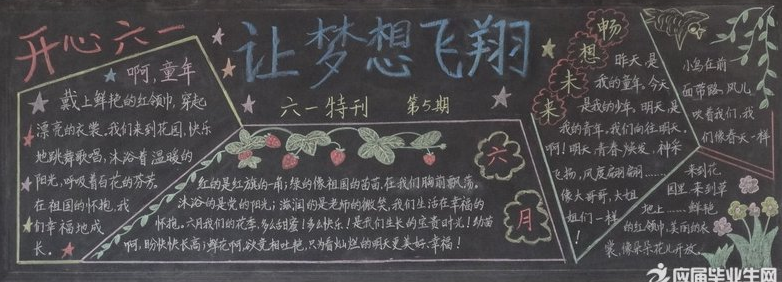 开心六一
让梦想飞翔
六一特刊 第5期
啊,童年
戴上鲜艳的红领巾,穿起
漂亮的衣裳,我们来到花园,快乐
地跳舞歌唱,沐浴着温暖的
阳光,呼吸着百花的芬芳。
在祖国的怀抱,我
们幸福地成
长。
六月
红的是红旗的一角;绿的像祖国的苗苗,在我们胸前飘荡。
沐浴的是党的阳光;滋润的是老师的微笑,我们生活在幸福的
怀抱。六月我们的花季,多么甜蜜!多么快乐!是我们生长的宝贵时光!幼苗
啊,盼快快长高;鲜花啊,欲竞相吐艳,只为看灿烂的明天更美好、幸福!
畅想未来
昨天是
我的童年,今天
是我的少年,明天是
我的青年,我们向往明天,
啊!明天,青春焕发,神采
飞扬,风度翩翩……
像大哥哥,大姐
姐们一样
小鸟在前
面带路,风儿
吹着我们,我
们像春天一样
来到花
园里,来到草
地上……鲜艳
的红领巾,美丽的衣
裳,像朵朵花儿开放。
应届毕业生网